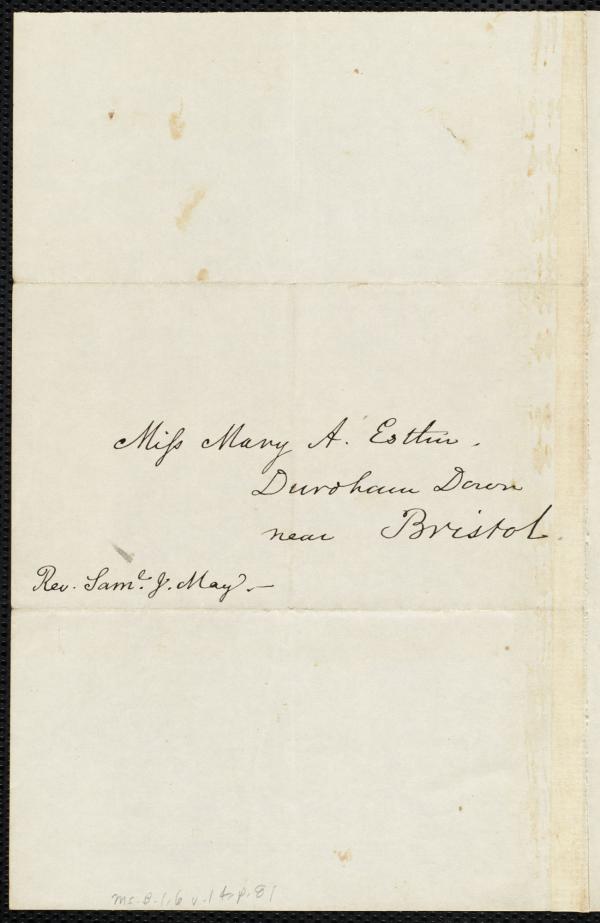 Miss Mary A. Estlin.
Durdham Down
near Bristol.
Rev. Saml. J. May.—
Ms. B. 1.6 v. 1
p. 81